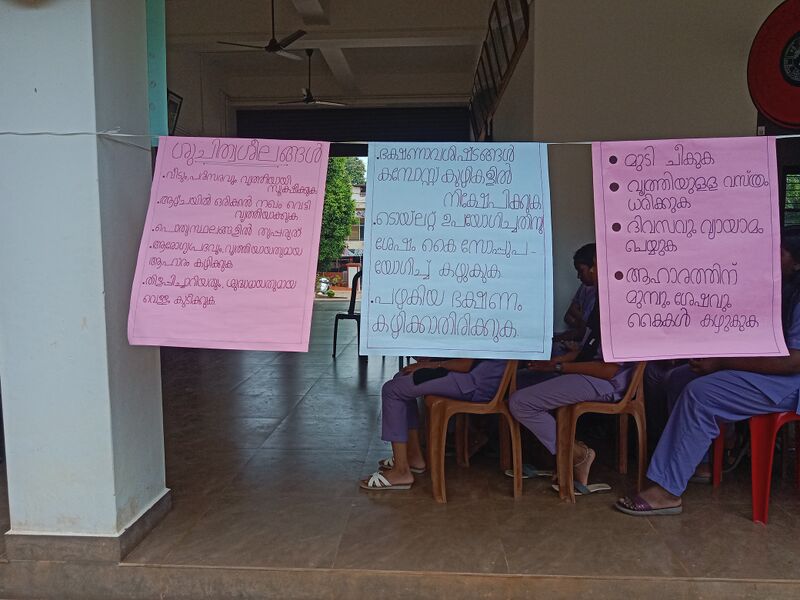 ശുചിത്വശീലങ്ങൾ
•വീടും,പരിസരവും വൃത്തിയായി
സൂക്ഷിക്കുക
•ആഴ്ചയിൽ ഒരിക്കൽ നഖം വെട്ടി
വൃത്തിയാക്കുക
•പൊതുസ്ഥലങ്ങളിൽ തുപ്പരുത്
•ആരോഗ്യപ്രദവും,വൃത്തിയായതുമായ
ആഹാരം കഴിക്കുക
•തിളപ്പിച്ചാറിയതും, ശുദ്ധമായതുമായ
വെള്ളം കുടിക്കുക
•ഭക്ഷണാവശിഷ്ടങ്ങൾ
കമ്പോസ്റ്റ് കുഴികളിൽ
നിക്ഷേപിക്കുക
•ടൊയ്ലറ്റ് ഉപയോഗിച്ചതിനു
ശേഷം കൈ സോപ്പുപ-
യോഗിച്ച് കഴുകുക
•പഴകിയ ഭക്ഷണം
കഴിക്കാതിരിക്കുക
• മുടി ചീകുക
• വൃത്തിയുള്ള വസ്ത്രം
ധരിക്കുക
• ദിവസവും വ്യായാമം
ചെയ്യുക
• ആഹാരത്തിന്
മുമ്പും ശേഷവും
കൈകൾ കഴുകുക